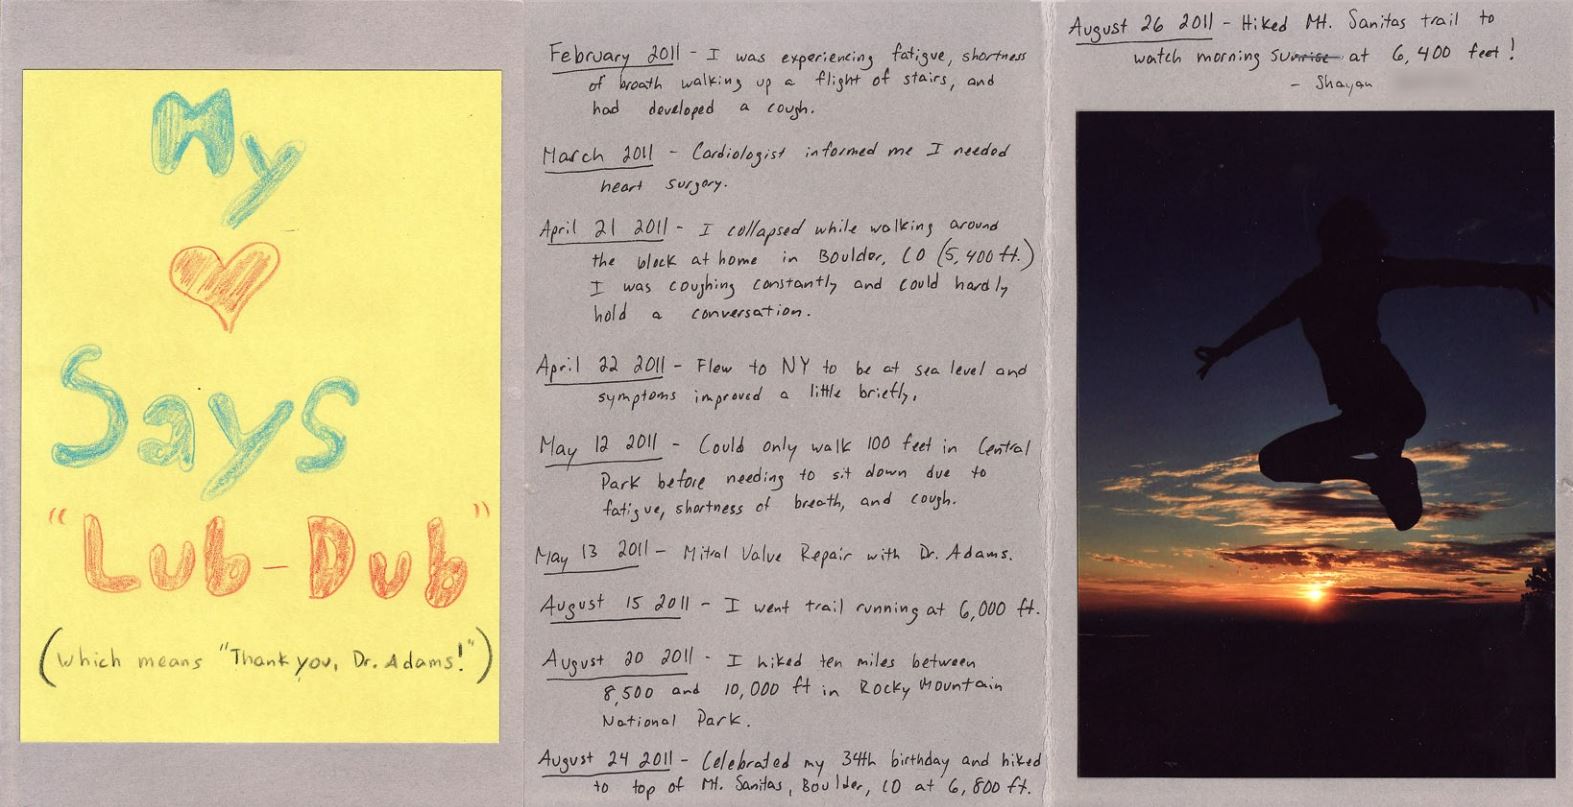 My
Says
"Lub-Dub"
(which means "Thank you, Dr. Adams!")
February 2011 - I was experiencing fatigue, shortness
of breath walking up a flight of stairs, and
had developed a cough.
March 2011 - Cardiologist informed me I needed
heart surgery.
April 21 2011 - I collapsed while walking around
the block at home in Boulder, CO (5,400 ft.)
I was coughing constantly and could hardly
hold a conversation.
April 22 2011 - Flew to NY to be at sea level and
symptoms improved a little briefly.
May 12 2011 - Could only walk 100 feet in Central
Park before needing to sit down due to
fatigue, shortness of breath, and cough.
May 13 2011 - Mitral Valve Repair with Dr. Adams.
August 15 2011 - I went trail running at 6,000 ft.
August 20 2011 - I hiked ten miles between
8,500 and 10,000 ft in Rocky Mountain
National Park.
August 24 2011 - Celebrated my 34th birthday and hiked
to top of Mt. Sanitas, Boulder, CO at 6,800 ft.
August 26 2011 - Hiked Mt. Sanitas trail to
watch morning sunrise at 6,400 feet!
- Shayan